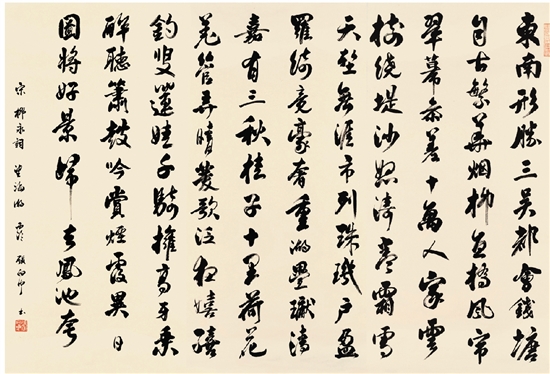 東南形勝三吳都會錢塘
自古繁華烟柳画橋風帘
翠幕参差十萬人家雲
樹繞堤沙怒濤卷霜雪
天塹無涯市列珠璣户盈
羅綺竞豪奢重湖疊巘清
嘉有三秋桂子十里荷花
羌管弄晴菱歌泛夜嬉嬉
釣叟蓮娃千騎擁高牙乘
醉聽簫鼓吟賞煙霞異日
圖將好景歸去鳳池夸
宋柳永詞望海潮